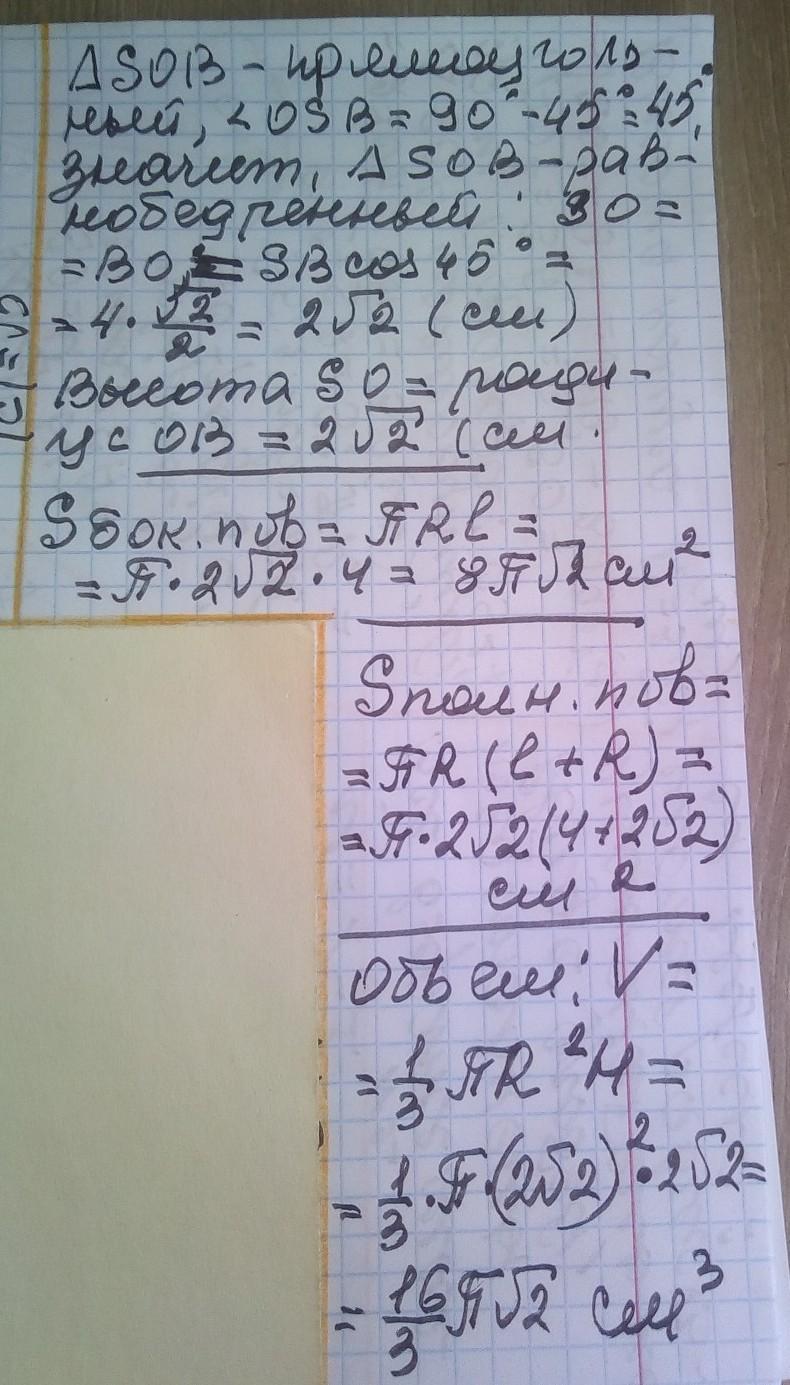 ΔSOB - прямоуголь-
ный, <OSB = 90° - 45° = 45°,
значит, ΔSOB - рав-
нобедренный: SO =
= BO = SB cos 45° =
= 4 · √2/2 = 2√2 (см)
Высота SO = ради-
ус OB = 2√2 (см.
S бок. пов = πRl =
= π · 2√2 · 4 = 8π√2 см²
S полн. пов =
= πR (l + R) =
= π · 2√2 (4 + 2√2)
см ²
Объем: V =
= 1/3 πR²H =
= 1/3 · π · (2√2)² · 2√2 =
= 16/3 π√2 см³